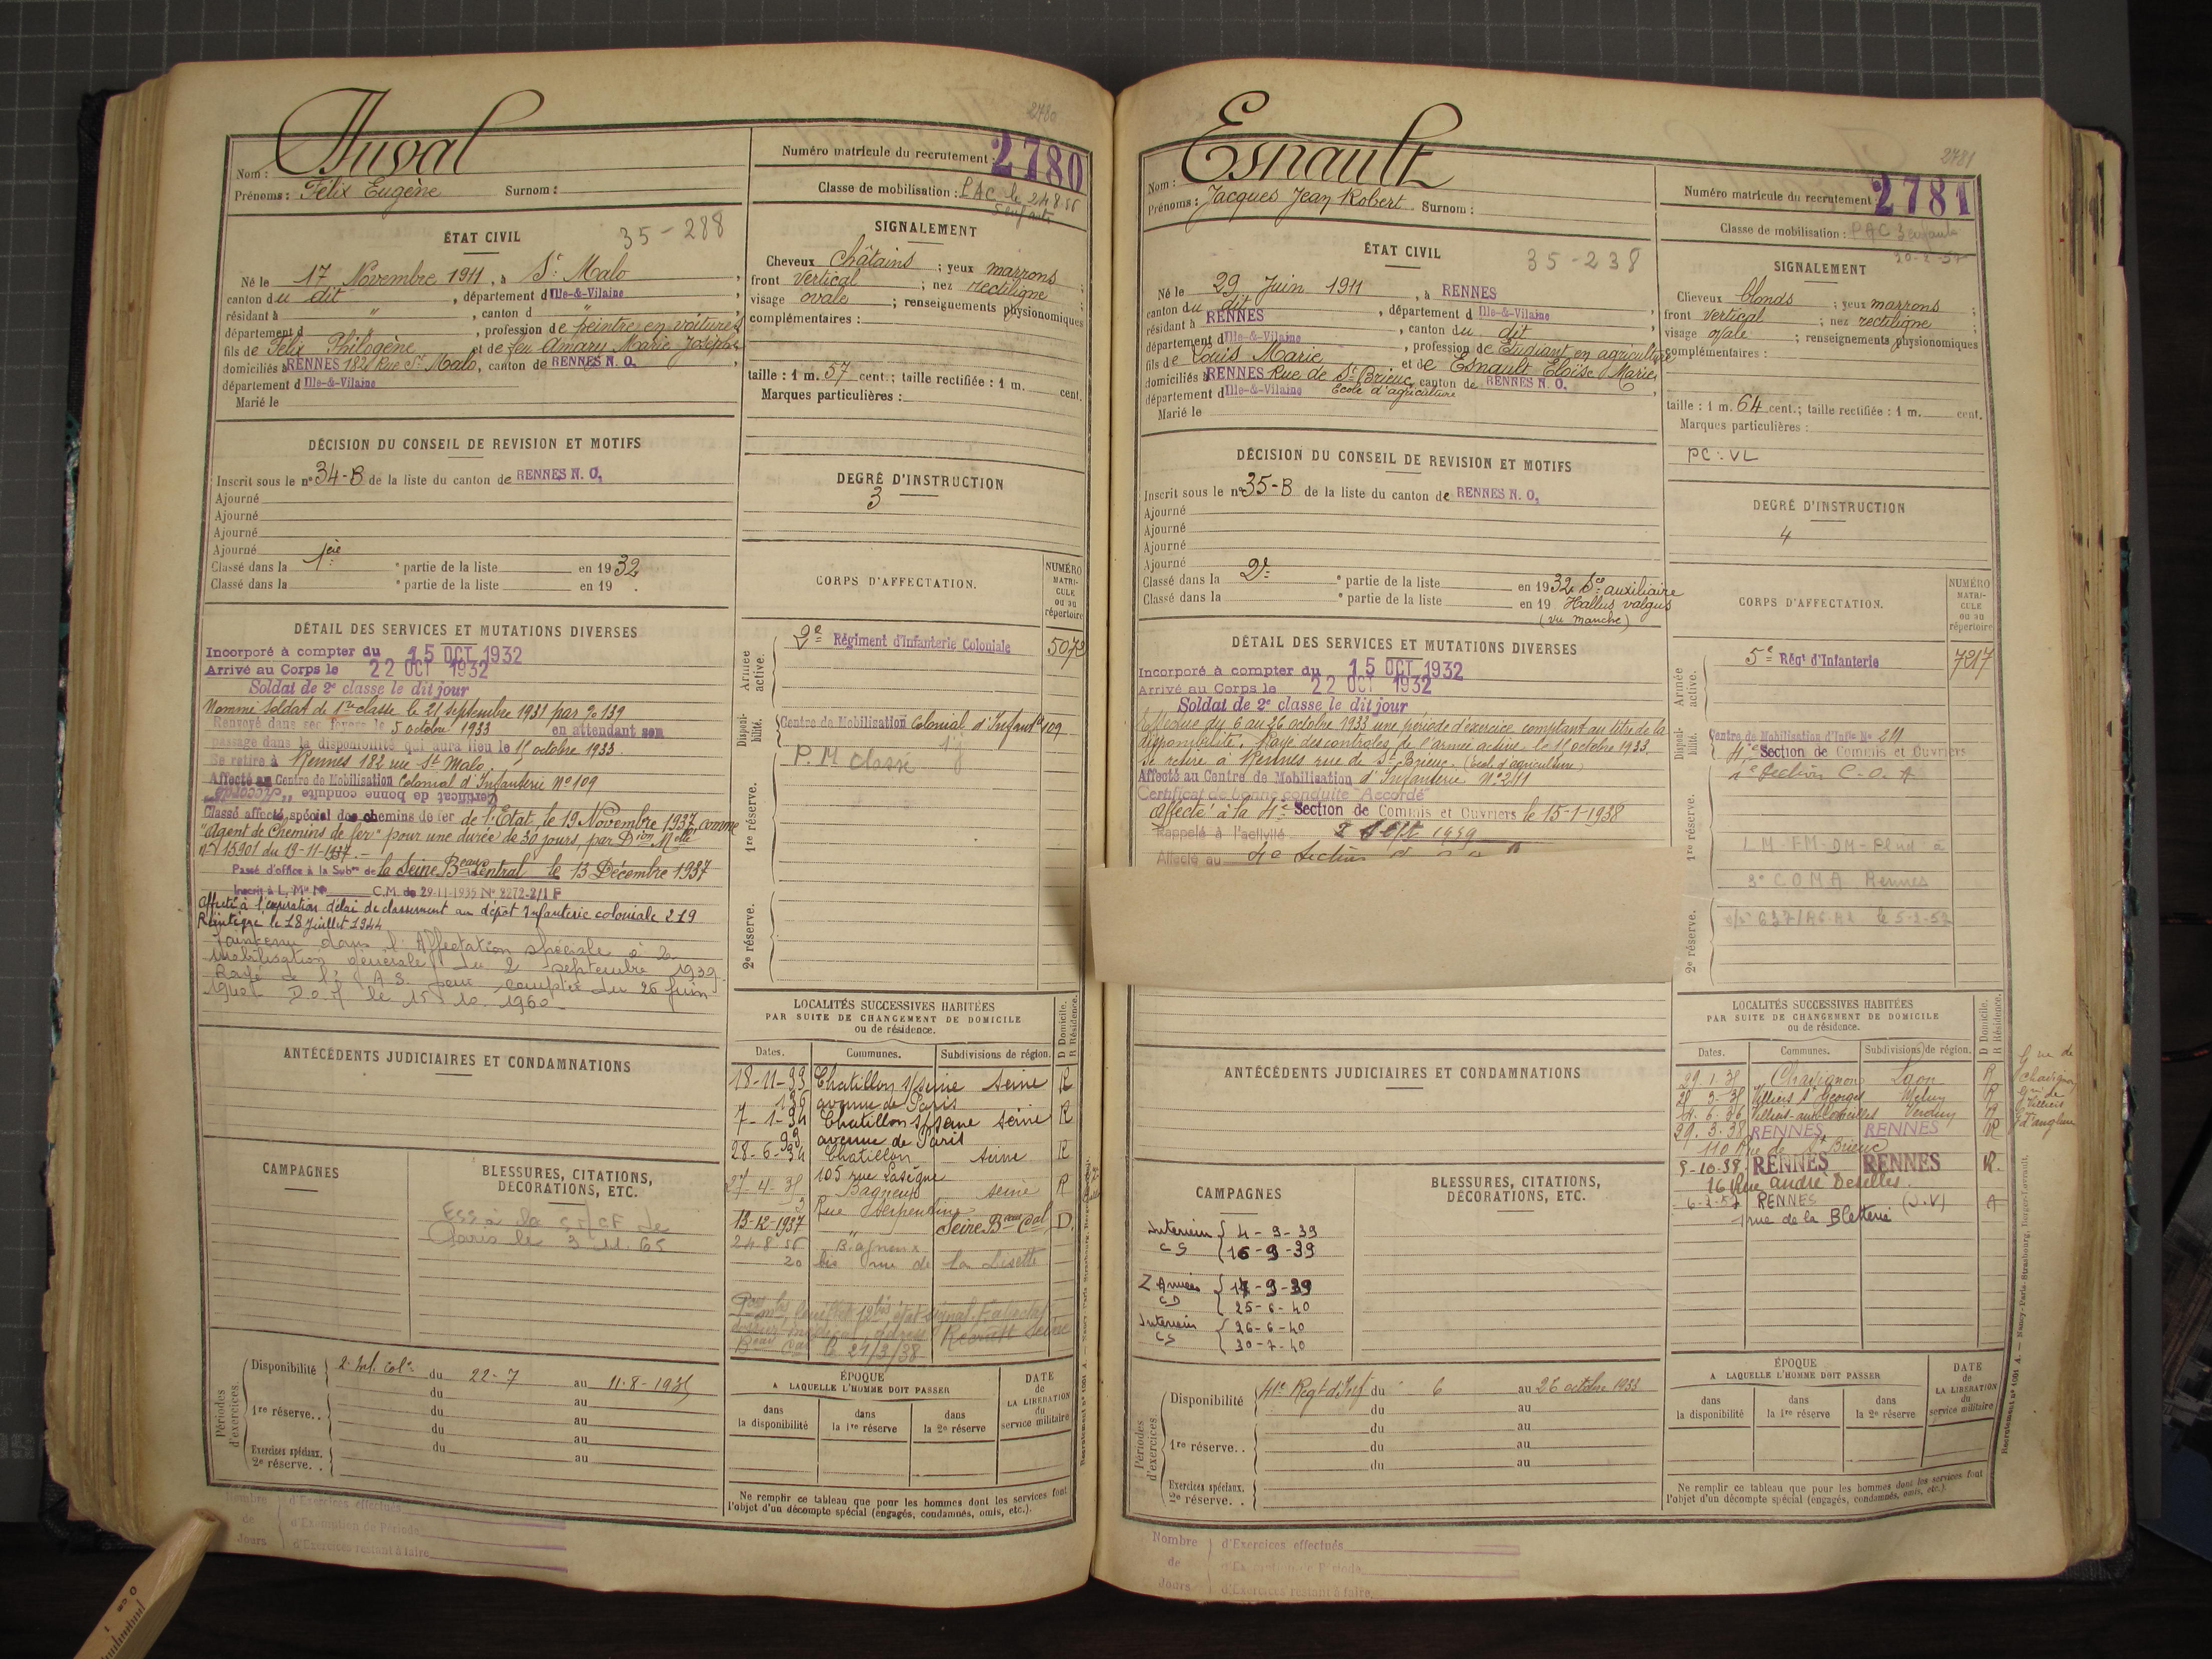 2780
Duval
Nom :
Prénoms : Félix Eugène Surnom :
Numéro matricule du recrutement : 2780
Classe de mobilisation : PAC le 24.8.56
5 enfants
ÉTAT CIVIL 35-288
Né le 17 Novembre 1911, à St Malo,
canton du dit, département d Ille-&-Vilaine,
résidant à ", canton d ",
département d , profession de peintre en voitures
fils de Félix Philogène et de feu Amary Marie Josèphe
domiciliés à RENNES 182 Rue St Malo, canton de RENNES N. O.
département d Ille-&-Vilaine
Marié le
SIGNALEMENT
Cheveux châtains ; yeux marrons ;
front vertical ; nez rectiligne ;
visage ovale ; renseignements physionomiques
complémentaires :
taille : 1 m. 57 cent. ; taille rectifiée : 1 m. cent.
Marques particulières :
DÉCISION DU CONSEIL DE REVISION ET MOTIFS
Inscrit sous le n° 34-B de la liste du canton de RENNES N. O,
Ajourné
Ajourné
Ajourné
Ajourné
Classé dans la 1ère ° partie de la liste en 1932
Classé dans la ° partie de la liste en 19 .
DEGRÉ D'INSTRUCTION
3
DÉTAIL DES SERVICES ET MUTATIONS DIVERSES
Incorporé à compter du 15 OCT 1932
Arrivé au Corps le 22 OCT 1932
Soldat de 2e classe le dit jour
Nommé Soldat de 1re classe le 21 septembre 1931 par % 139
Renvoyé dans ses foyers le 5 octobre 1933 en attendant son
passage dans la disponibilité qui aura lieu le 15 octobre 1933.
Se retire à Rennes 182 rue St Malo.
Affecté au Centre de Mobilisation Colonial d'Infanterie N° 109
Certificat de bonne conduite "Accordé"
Classé affecté spécial des chemins de fer de l'Etat, le 19 Novembre 1937 comme
"Agent de Chemins de fer" pour une durée de 30 jours, par Dion Melle
n° 15901 du 19-11-1937.-
Passé d'office à la Subon de la Seine Beau Central le 13 Décembre 1937
Inscrit à L. Me N° C.M. de 29-11-1935 N° 2272-2/1 F
Affecté à l'expiration délai de classement au dépôt Infanterie coloniale 219
Réintégré le 18 Juillet 1944
Maintenu dans l'Affectation spéciale à la
Mobilisation générale du 2 septembre 1939.
Rayé de l'A.S. pour compter du 25 juin
1940. D.O.M le 15.10.1960
CORPS D'AFFECTATION.
NUMÉRO MATRICULE ou au répertoire
Armée active.
2e Régiment d'Infanterie Coloniale 5073
Disponibilité.
Centre de Mobilisation Colonial d'Infante 109
P.M classé
1re réserve.
2e réserve.
ANTÉCÉDENTS JUDICIAIRES ET CONDAMNATIONS
LOCALITÉS SUCCESSIVES HABITÉES
PAR SUITE DE CHANGEMENT DE DOMICILE
ou de résidence.
D Domicile. R Résidence.
Dates. Communes. Subdivisions de région.
18-11-33 Chatillon s/seine Seine R
136 avenue de Paris
7-1-34 Chatillon s/seine Seine R
93 avenue de Paris
28-6-34 Chatillon Seine R
105 rue Lasègne
27-4-35 Bagneux Seine R
3 Rue d Serpentine
13-12-1937 " Seine Beau Cal D.
24-8-56 Bagneux
20 bis rue de la Lisette
le 24/3/38
CAMPAGNES
BLESSURES, CITATIONS, DÉCORATIONS, ETC.
Paris le 3.11.65
Périodes d'exercices.
Disponibilité 2e Inf. Cole du 22-7 au 11-8-1935
du au
1re réserve. . du au
du au
Exercices spéciaux. du au
2e réserve. .
ÉPOQUE
A LAQUELLE L'HOMME DOIT PASSER
dans la disponibilité
dans la 1re réserve
dans la 2e réserve
DATE de LA LIBÉRATION du service militaire
Ne remplir ce tableau que pour les hommes dont les services font
l'objet d'un décompte spécial (engagés, condamnés, omis, etc.).
Nombre de Jours
d'Exercices effectués
d'Exemption de Période
d'Exercices restant à faire
2781
Esnault
Nom :
Prénoms : Jacques Jean Robert Surnom :
Numéro matricule du recrutement : 2781
Classe de mobilisation : PAC 3 enfants
20-2-57
ÉTAT CIVIL 35-238
Né le 29 Juin 1911, à RENNES
canton du dit, département d Ille-&-Vilaine,
résidant à RENNES, canton du dit,
département d Ille-&-Vilaine, profession de Etudiant en agriculture
fils de Louis Marie et de Esnault Eloïse Marie,
domiciliés à RENNES Rue de St Brieuc, canton de RENNES N. O.
département d Ille-&-Vilaine Ecole d'agriculture
Marié le
SIGNALEMENT
Cheveux blonds ; yeux marrons ;
front vertical ; nez rectiligne ;
visage ovale ; renseignements physionomiques
complémentaires :
taille : 1 m. 64 cent. ; taille rectifiée : 1 m. cent.
Marques particulières :
PC : VL
DÉCISION DU CONSEIL DE REVISION ET MOTIFS
Inscrit sous le n° 35-B de la liste du canton de RENNES N. O,
Ajourné
Ajourné
Ajourné
Ajourné
Classé dans la 2e ° partie de la liste en 1932 Sce auxiliaire
Classé dans la ° partie de la liste en 19 Hallus valgus
(vu manche)
DEGRÉ D'INSTRUCTION
4
DÉTAIL DES SERVICES ET MUTATIONS DIVERSES
Incorporé à compter du 15 OCT 1932
Arrivé au Corps le 22 OCT 1932
Soldat de 2e classe le dit jour
Effectue du 6 au 26 octobre 1933 une période d'exercice comptant au titre de la
disponibilité. Rayé des contrôles de l'armée active le 15 octobre 1933.
Se retire à Rennes rue de St Brieuc (école d'agriculture)
Affecté au Centre de Mobilisation d'Infanterie N° 211
Certificat de bonne conduite "Accordé"
Affecté à la 4e Section de Commis et Ouvriers le 15-1-1938
Rappelé à l'activité 2 Sept 1939
Affecté au 4e Section
CORPS D'AFFECTATION.
NUMÉRO MATRICULE ou au répertoire
Armée active.
5e Régt d'Infanterie 7217
Disponibilité.
Centre de Mobilisation d'Infie N° 211
4e Section de Commis et Ouvriers
4e Section C.O.A
1re réserve.
3e COMA Rennes
2e réserve.
le 5-2-52
ANTÉCÉDENTS JUDICIAIRES ET CONDAMNATIONS
LOCALITÉS SUCCESSIVES HABITÉES
PAR SUITE DE CHANGEMENT DE DOMICILE
ou de résidence.
D Domicile. R Résidence.
Dates. Communes. Subdivisions de région.
29-1-35 Chavignon Laon R
28-3-35 Villiers St Georges Melun R
29.3.38 RENNES RENNES R
110 Rue de St Brieuc
8-10-38 RENNES RENNES R.
16 Rue André Deselles.
RENNES (I.V) A
1 rue de la Bletterie
CAMPAGNES
BLESSURES, CITATIONS, DÉCORATIONS, ETC.
Interieur CS { 4-9-39
16-9-39
Z Armées CD { 17-9-39
25-6-40
Interieur CS { 26-6-40
30-7-40
Périodes d'exercices.
Disponibilité 41e Régt d'Inf du 6 au 26 octobre 1933
du au
du au
1re réserve. . du au
du au
Exercices spéciaux.
2e réserve. .
ÉPOQUE
A LAQUELLE L'HOMME DOIT PASSER
dans la disponibilité
dans la 1re réserve
dans la 2e réserve
DATE de LA LIBÉRATION du service militaire
Ne remplir ce tableau que pour les hommes dont les services font
l'objet d'un décompte spécial (engagés, condamnés, omis, etc.).
Nombre de Jours
d'Exercices effectués
d'Exemption de Période
d'Exercices restant à faire